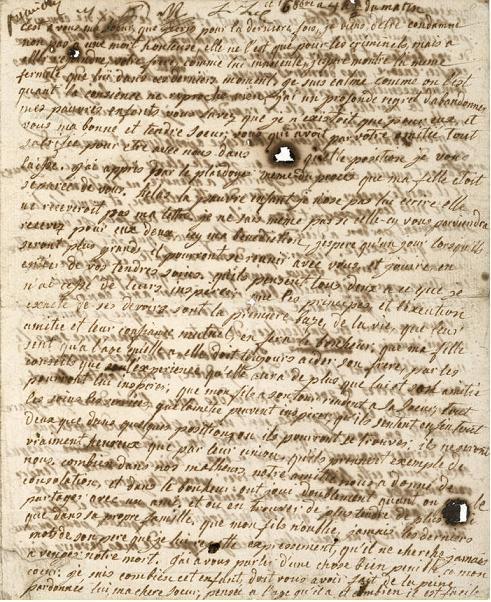 ce 16 8bre a 4 h ½ du matin
C'est a vous, ma soeur, que j'ecris pour la derniere fois, je viens d'etre condamnée
non pas a une mort honteuse, elle ne l'est que pour les criminels, mais a
aller rejoindre votre frere, comme lui innocente, j'espere montrer la meme
fermeté que lui dans ces derniers moments. je suis calme comme on l'est
quand la conscience ne reproche rien, j'ai un profond regret d'abandonner
mes pauvres enfants vous savez que je n'existois que pour eux, et
vous ma bonne et tendre soeur, vous qui avez par votre amitié tout
sacrifié pour être avec nous dans quelle position je vous
laisse, j'ai appris par le plaidoyer même du proces que ma fille étoit
separée de vous. helas la pauvre enfant je n'ose pas lui ecrire elle
ne receveroit pas ma lettre je ne sais même pas si celle-ci vous parviendra
recevez pour eux deux ici ma benediction, j'espere qu'un jour lorsqu'ils
seront plus grands, ils pourront se reunir avec vous, et jouir en
entier de vos tendres soins, qu'ils pensent tous deux a ce que je
n'ai cessé de leurs inspirer, que les principes, et l'execution
exacte de ses devoirs sont la premiere baze de la vie, que leur
amitié et leur confiance mutuel, en fera le bonheur, que ma fille
sent qu'a l'age qu'elle a, elle doit toujours aider son frere, par les
conseils que experience qu'elle aura de plus que lui et amitié
pourront lui inspirer, que mon fils a son tour, rendent a sa soeur, tout
les soins les services que l'amitié peuvent inspirer, qu'ils sentent enfin tout
deux que, dans quelques positions ou ils pourront se trouver, il ne seront
vraiment heureux que par leur union, qu'ils prennent exemple de
nous, combien dans nos malheurs, notre amitié nous a donné de
consolation, et dans le bonheur ont jouit doublement quand on
partager avec un ami, et ou en trouver de plus tendre de plus
que dans sa propre famille, que mon fils n'oublie jamais les derniers
mots de son pere que je lui repette expressement, qu'il ne cherche jamais
a venger notre mort. j'ai a vous parler d'une chose bien penible a mon
coeur. je sais combien cet enfant, doit vous avoir fait de la peine,
pardonnez lui, ma chere soeur, pensez a l'age qu'il a, et combien il est facile